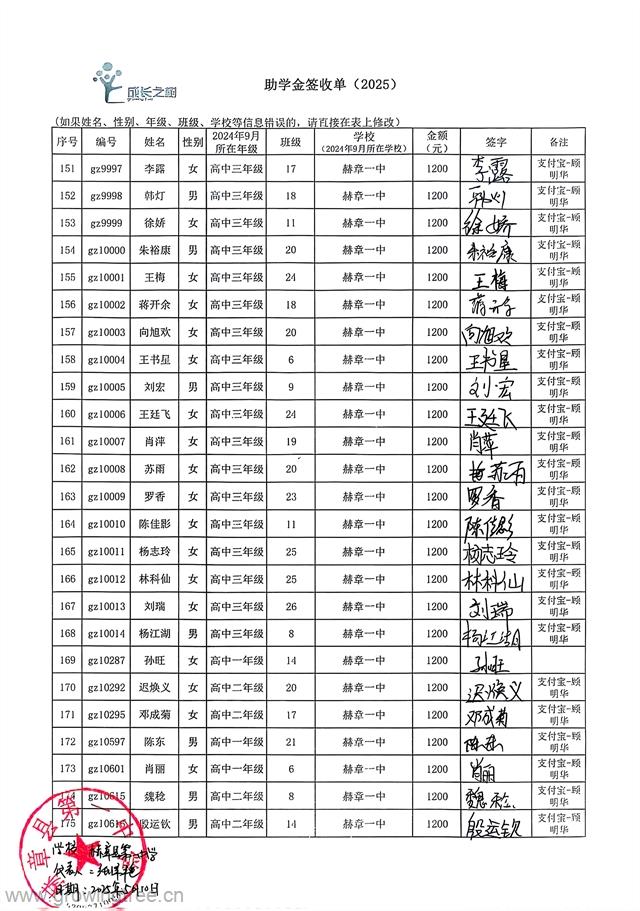 成长之树
助学金签收单（2025）
(如果姓名、性别、年级、班级、学校等信息错误的，请直接在表上修改)
序号 编号 姓名 性别 2024年9月所在年级 班级 学校（2024年9月所在学校） 金额（元） 签字 备注
151 gz9997 李露 女 高中三年级 17 赫章一中 1200 李露 支付宝-顾明华
152 gz9998 韩灯 男 高中三年级 18 赫章一中 1200 韩灯 支付宝-顾明华
153 gz9999 徐娇 女 高中三年级 11 赫章一中 1200 徐娇 支付宝-顾明华
154 gz10000 朱裕康 男 高中三年级 20 赫章一中 1200 朱裕康 支付宝-顾明华
155 gz10001 王梅 女 高中三年级 24 赫章一中 1200 王梅 支付宝-顾明华
156 gz10002 蒋开余 女 高中三年级 18 赫章一中 1200 蒋开余 支付宝-顾明华
157 gz10003 向旭欢 女 高中三年级 20 赫章一中 1200 向旭欢 支付宝-顾明华
158 gz10004 王书星 女 高中三年级 6 赫章一中 1200 王书星 支付宝-顾明华
159 gz10005 刘宏 男 高中三年级 9 赫章一中 1200 刘宏 支付宝-顾明华
160 gz10006 王廷飞 女 高中三年级 24 赫章一中 1200 王廷飞 支付宝-顾明华
161 gz10007 肖萍 女 高中三年级 19 赫章一中 1200 肖萍 支付宝-顾明华
162 gz10008 苏雨 女 高中三年级 20 赫章一中 1200 苏雨 支付宝-顾明华
163 gz10009 罗香 女 高中三年级 23 赫章一中 1200 罗香 支付宝-顾明华
164 gz10010 陈佳影 女 高中三年级 11 赫章一中 1200 陈佳影 支付宝-顾明华
165 gz10011 杨志玲 女 高中三年级 25 赫章一中 1200 杨志玲 支付宝-顾明华
166 gz10012 林科仙 女 高中三年级 25 赫章一中 1200 林科仙 支付宝-顾明华
167 gz10013 刘瑞 女 高中三年级 26 赫章一中 1200 刘瑞 支付宝-顾明华
168 gz10014 杨江湖 男 高中三年级 8 赫章一中 1200 杨江湖 支付宝-顾明华
169 gz10287 孙旺 女 高中一年级 14 赫章一中 1200 孙旺
170 gz10292 迟焕义 女 高中二年级 20 赫章一中 1200 迟焕义 支付宝-顾明华
171 gz10295 邓成菊 女 高中二年级 17 赫章一中 1200 邓成菊 支付宝-顾明华
172 gz10597 陈东 男 高中一年级 21 赫章一中 1200 陈东 支付宝-顾明华
173 gz10601 肖丽 女 高中一年级 6 赫章一中 1200 肖丽 支付宝-顾明华
174 gz10615 魏稔 男 高中二年级 8 赫章一中 1200 魏稔 支付宝-顾明华
175 殷运钦 男 高中二年级 14 赫章一中 1200 殷运钦 支付宝-顾明华
学校：赫章县第一中学
代表人：
日期：2025年5月10日
www.growingtree.cn